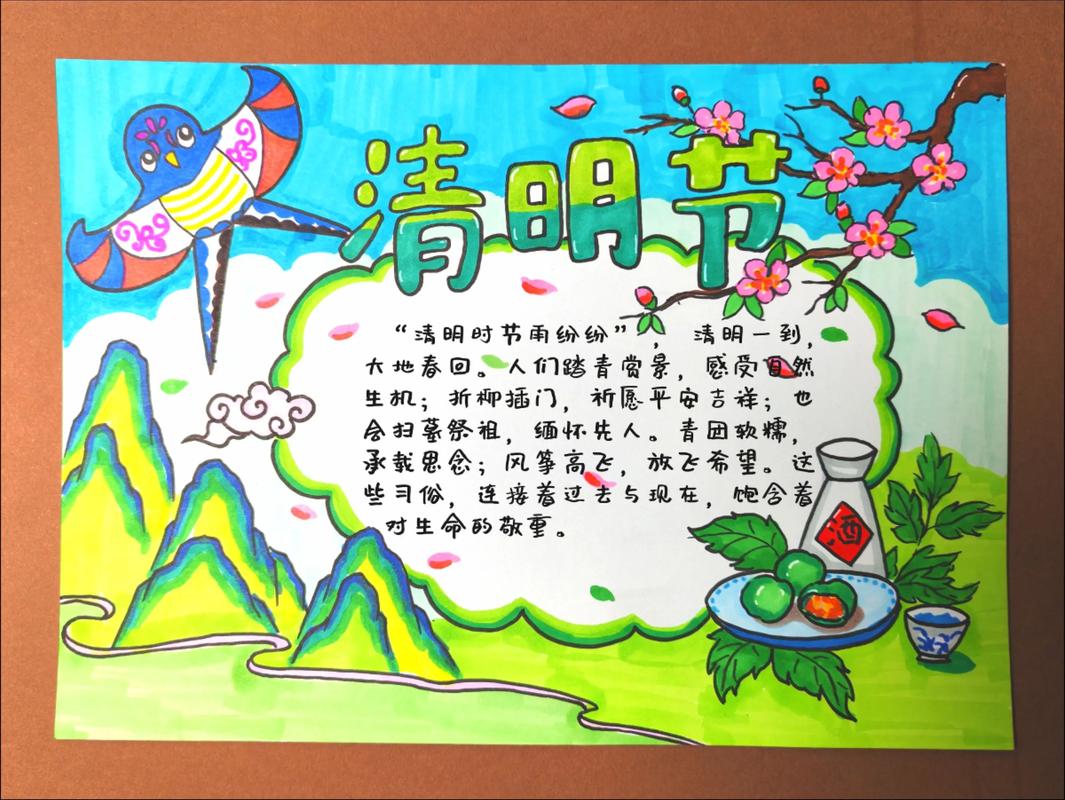 清明节
“清明时节雨纷纷”，清明一到，
大地春回。人们踏青赏景，感受自然
生机；折柳插门，祈愿平安吉祥；也
会扫墓祭祖，缅怀先人。青团软糯，
承载思念；风筝高飞，放飞希望。这
些习俗，连接着过去与现在，饱含着
对生命的敬重。
酒